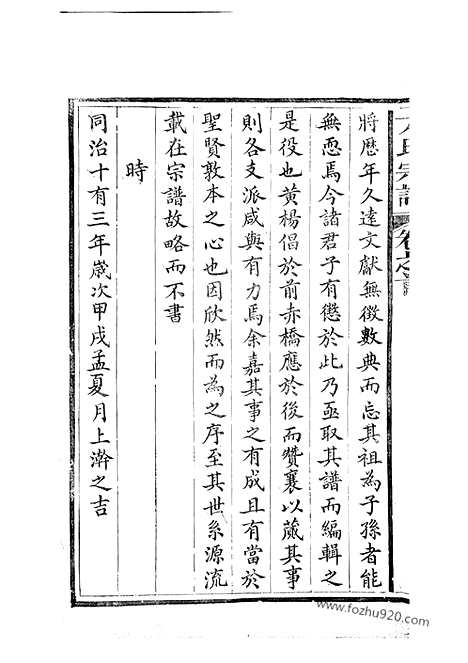 將歷年久遠文獻無徵數典而忘其祖為子孫者能
無恧焉今諸君子有懲於此乃亟取其譜而編輯之
是役也黃楊倡於前赤橋應於後而贊襄以蕆其事
則各支派咸與有力焉余嘉其事之有成且有當於
聖賢敦本之心也因欣然而為之序至其世系源流
載在宗譜故略而不書
時
同治十有三年歲次甲戌孟夏月上澣之吉
www.fozhu920.com